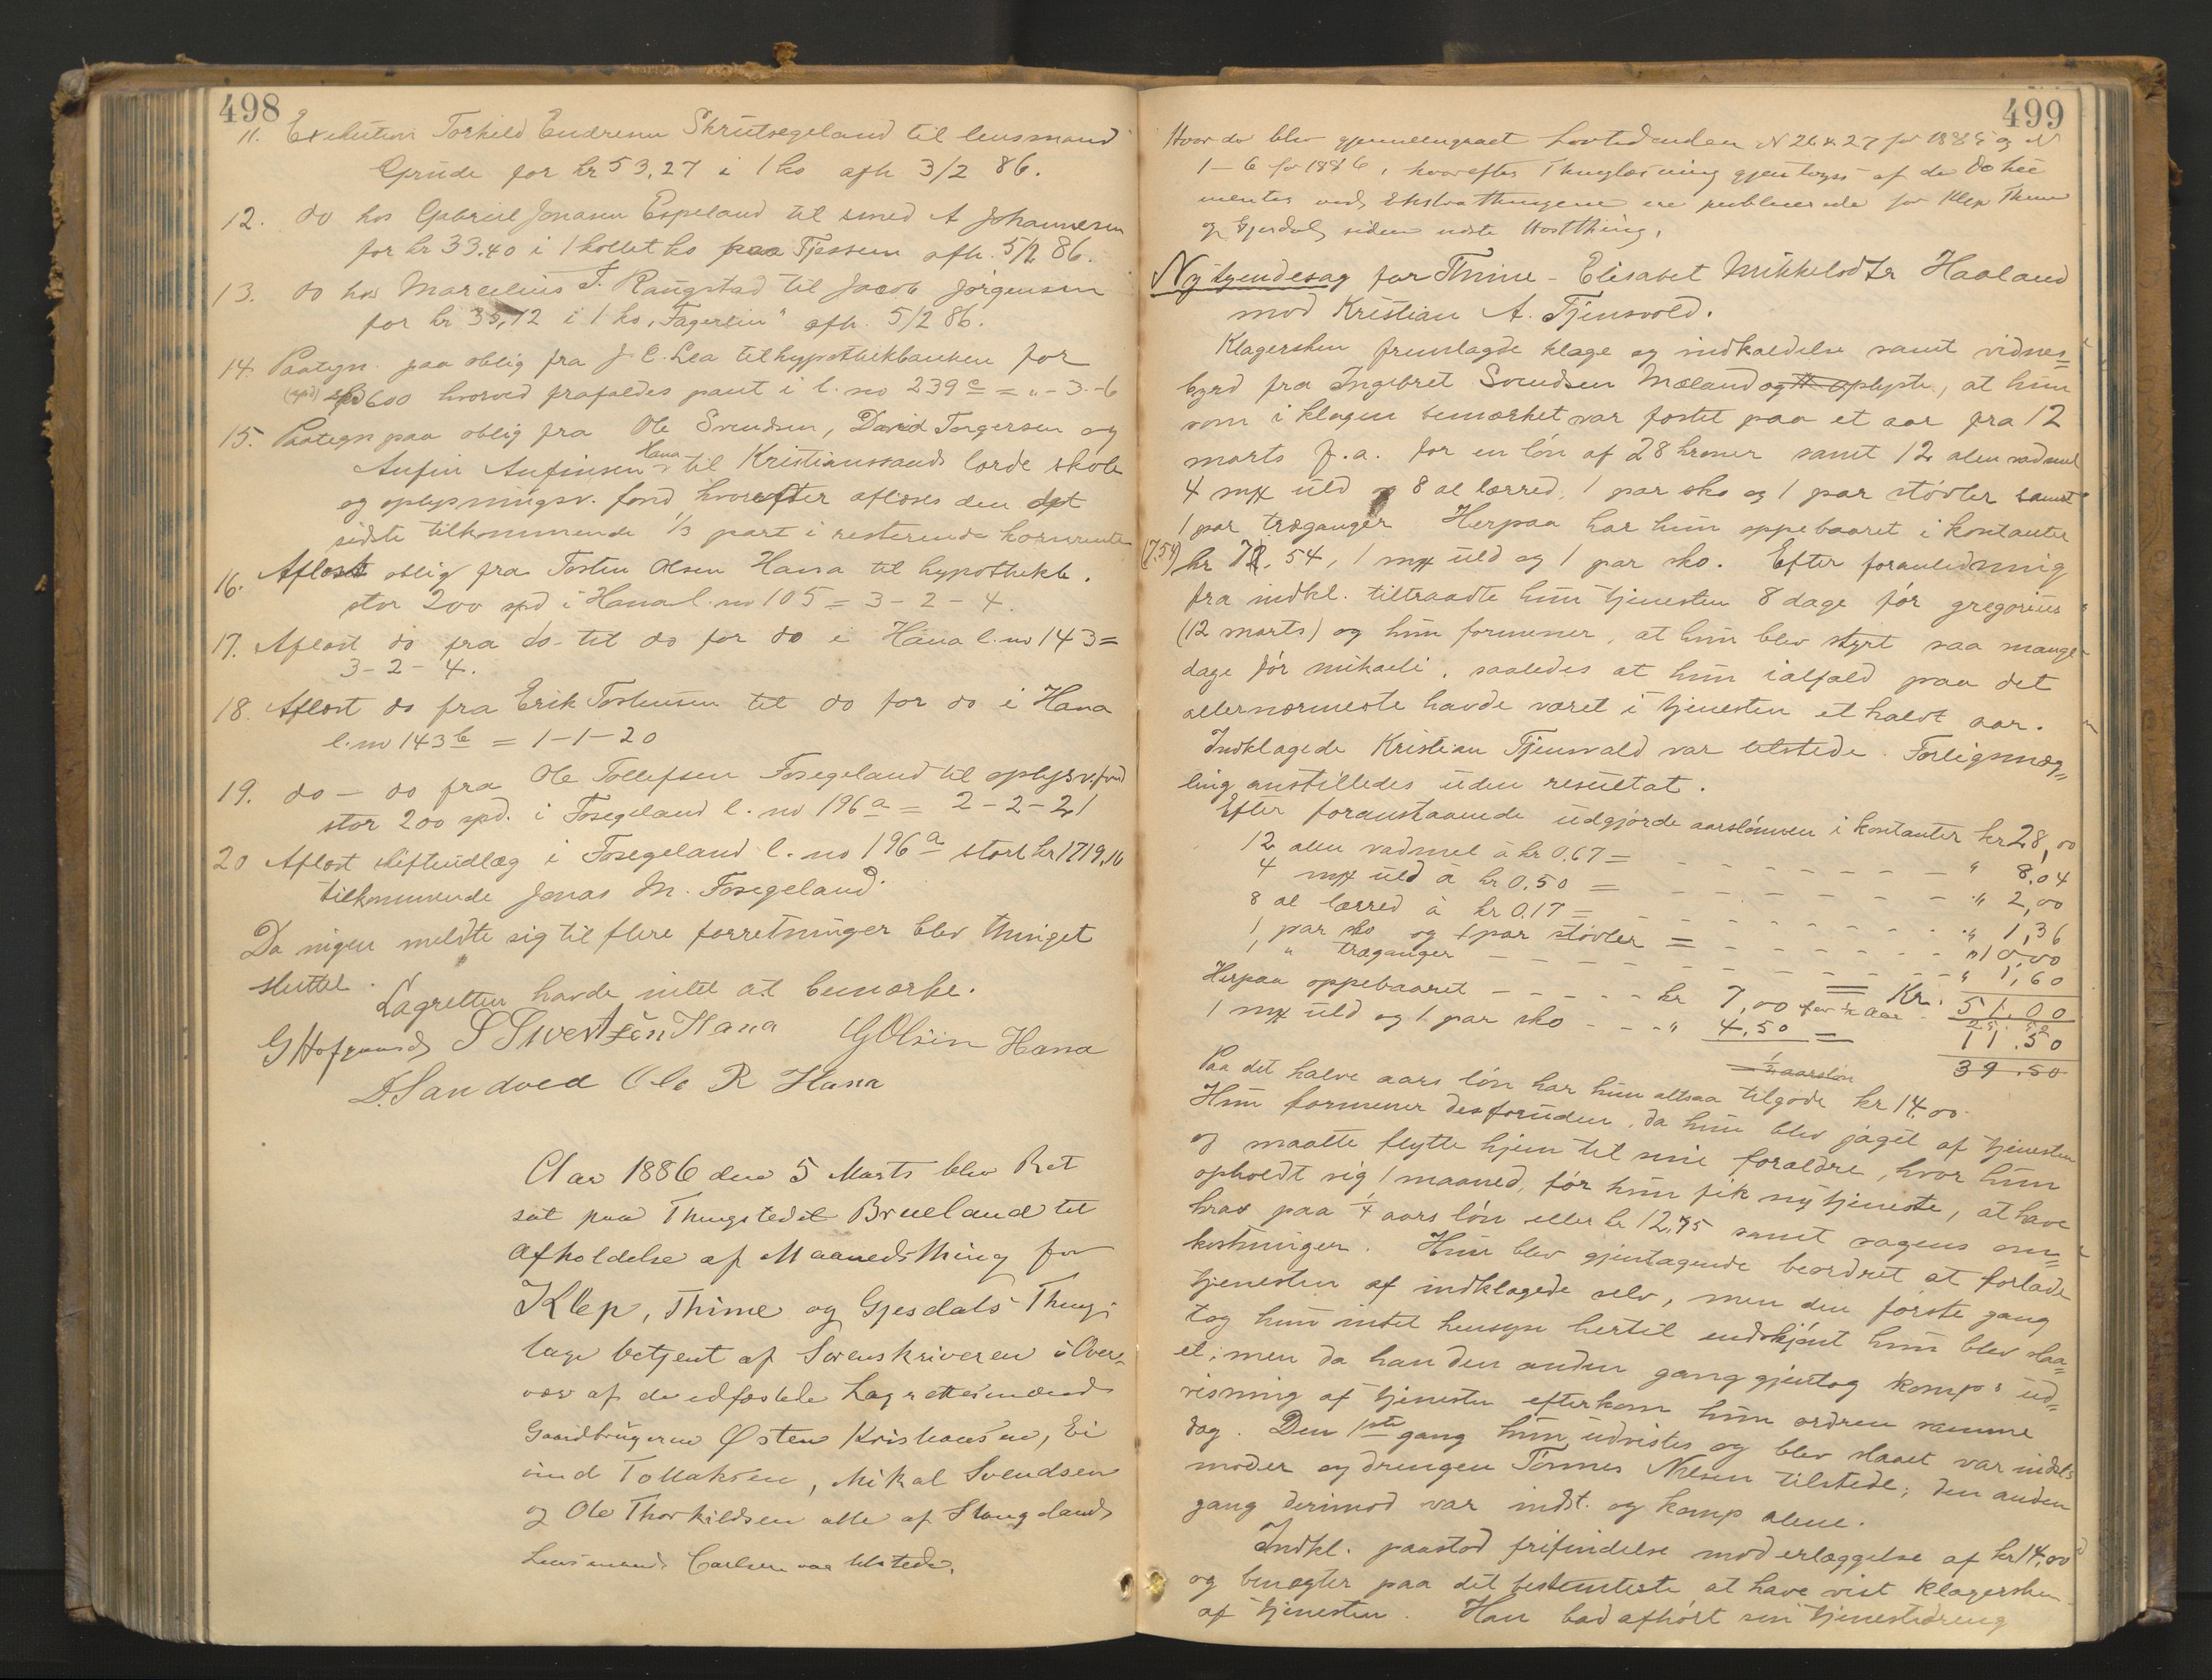 498
11. Exekution Torkild Endresen Skrutsegeland til lensmand
Grude for kr 53,27 i 1 ko afh 3/2 86.
12. do hos Gabriel Jonasen Espeland til smed A Johannesen
for kr 33.40 i 1 kollet ko paa Tjessem afh. 5/2 86.
13. do hos Marcelius T. Raugstad til Jacob Jörgensen
for kr 35,12 i 1 ko „Fagerlin" afh. 5/2 86.
14. Paategn. paa oblig fra J. E. Lea til hypothekbanken for
(spd) spd 600 hvorved frafaldes pant i l. no 239 c = „ - 3 - 6
15. Paategn paa oblig fra Ole Svendsen, David Torgersen og
Aufin Aufinsen Hana til Kristianssands lærde skole
og oplysningsv. fond, hvorefter aflöses den det
sidste tilkommende 1/3 part i resterende kornrente
16. Aflöst oblig fra Tosten Olsen Hana til hypothekb.
stor 200 spd i Hana l. no 105 = 3 - 2 - 4.
17. Aflöst do fra do til do for do i Hana l. no 143 =
3 - 2 - 4.
18. Aflöst do fra Erik Tostensen til do for do i Hana
l. no 143 b = 1 - 1 - 20
19. do - do fra Ole Tollefsen Fosegeland til oplysv. fond
stor 200 spd. i Fosegeland l. no 196 a = 2 - 2 - 21
20 Aflöst skifteudlæg i Fosegeland l. no 196 a stort kr 1719,16
tilkommende Jonas M. Fosegeland.
Da ingen meldte sig til flere forretninger blev thinget
sluttet.
Lagretten havde intet at bemærke.
G Hofgaard S Sivertsen Hana G Olsen Hana
D. Sandved Ole R Hana
Aar 1886 den 5 Marts blev Ret
sat paa Thingstedet Brueland til
Afholdelse af Maanedsthing for
Klep, Thime og Gjesdals Thing-
lage betjent af Sorenskriveren i Over-
vær af de edfæstede Lagrettesmænd
Gaardbrugerne Østen Kristiansen, Ei
vind Tollaksen, Mikal Svendsen
og Ole Thorkildsen alle af Stangeland
Lensmand Carlsen var tilstede.
499
Hvor da blev gjennemgaaet Lovtidenden N 26 & 27 for 1885 og N
1-6 for 1886, hvorefter Thinglæsning gjentoges af de Doku
menter ved Ekstrathingene ere publicerede for Klep Thime
og Gjesdal siden sidste Høstthing.
Ny tyendesag for Thime - Elisabet Mikkelsdtr Haaland
mod Kristian A. Tjensvold.
Klagersken fremlagde klage og indkaldelse samt vidnes=
byrd fra Ingebret Svendsen Mæland og oplyste, at hun
som i klagen bemærket var fæstet paa et aar fra 12
marts f. a. for en lön af 28 kroner samt 12 alen vadmel
4 mk uld 8 al lærred, 1 par sko og 1 par stövler samt
1 par træganger Herpaa har hun oppebaaret i kontanter
(7,54) kr 7. 54, 1 mk uld og 1 par sko. Efter foranledning
fra indkl. tiltraadte hun tjenesten 8 dage för gregorius
(12 marts) og hun formener, at hun blev styrt saa mange
dage för mikaeli, saaledes at hun ialfald paa det
allernærmeste havde været i tjenesten et halvt aar.
Indklagede Kristian Tjensvold var tilstede. Forligsmæg=
ling anstilledes uden resultat.
Efter foranstaaende udgjörde aarslönnen i kontanter kr 28,00
12 alen vadmel à kr 0.67 = - - - - - - - „ 8,04
4 mk uld à kr 0.50 = - - - - - - - „ 2,00
8 al lærred à kr 0.17 = - - - - - - - „ 1,36
1 par sko og 1 par stövler = - - - - - - „ 10,00
1 „ træganger - - - - - - - - - „ 1,60
Kr. 51.00
Herpaa oppebaaret - - - - - kr 7,00 for ½ aar
1 mk uld og 1 par sko - - - „ 4.50 = 11.50
= ½ aarslön 39.50
Paa det halve aars lön har hun altsaa tilgode kr 14,00.
Hun formener desforuden, da hun blev jaget af tjenesten
og maatte flytte hjem til sine forældre, hvor hun
opholdt sig 1 maaned, för hun fik ny tjeneste, at have
krav paa ¼ aars lön eller kr 12,75 samt sagens om=
kostninger. Hun blev gjentagende beordret at forlade
tjenesten af indklagede selv, men den förste gang
tog hun intet hensyn hertil endskjönt hun blev slaa=
et; men da han den anden gang gjentog komp: ud=
visning af tjenesten efterkom hun ordren samme
dag. Den 1ste gang hun udvistes og blev slaaet var indkls
moder og drengen Tönnes Nilsen tilstede; den anden
gang derimod var indst. og komp alene.
Indkl. paastod frifindelse mod erlæggelse af kr 14,00
og benægter paa det bestemteste at have vist klagersken
af tjenesten. Han bad afhört sin tjenestedreng